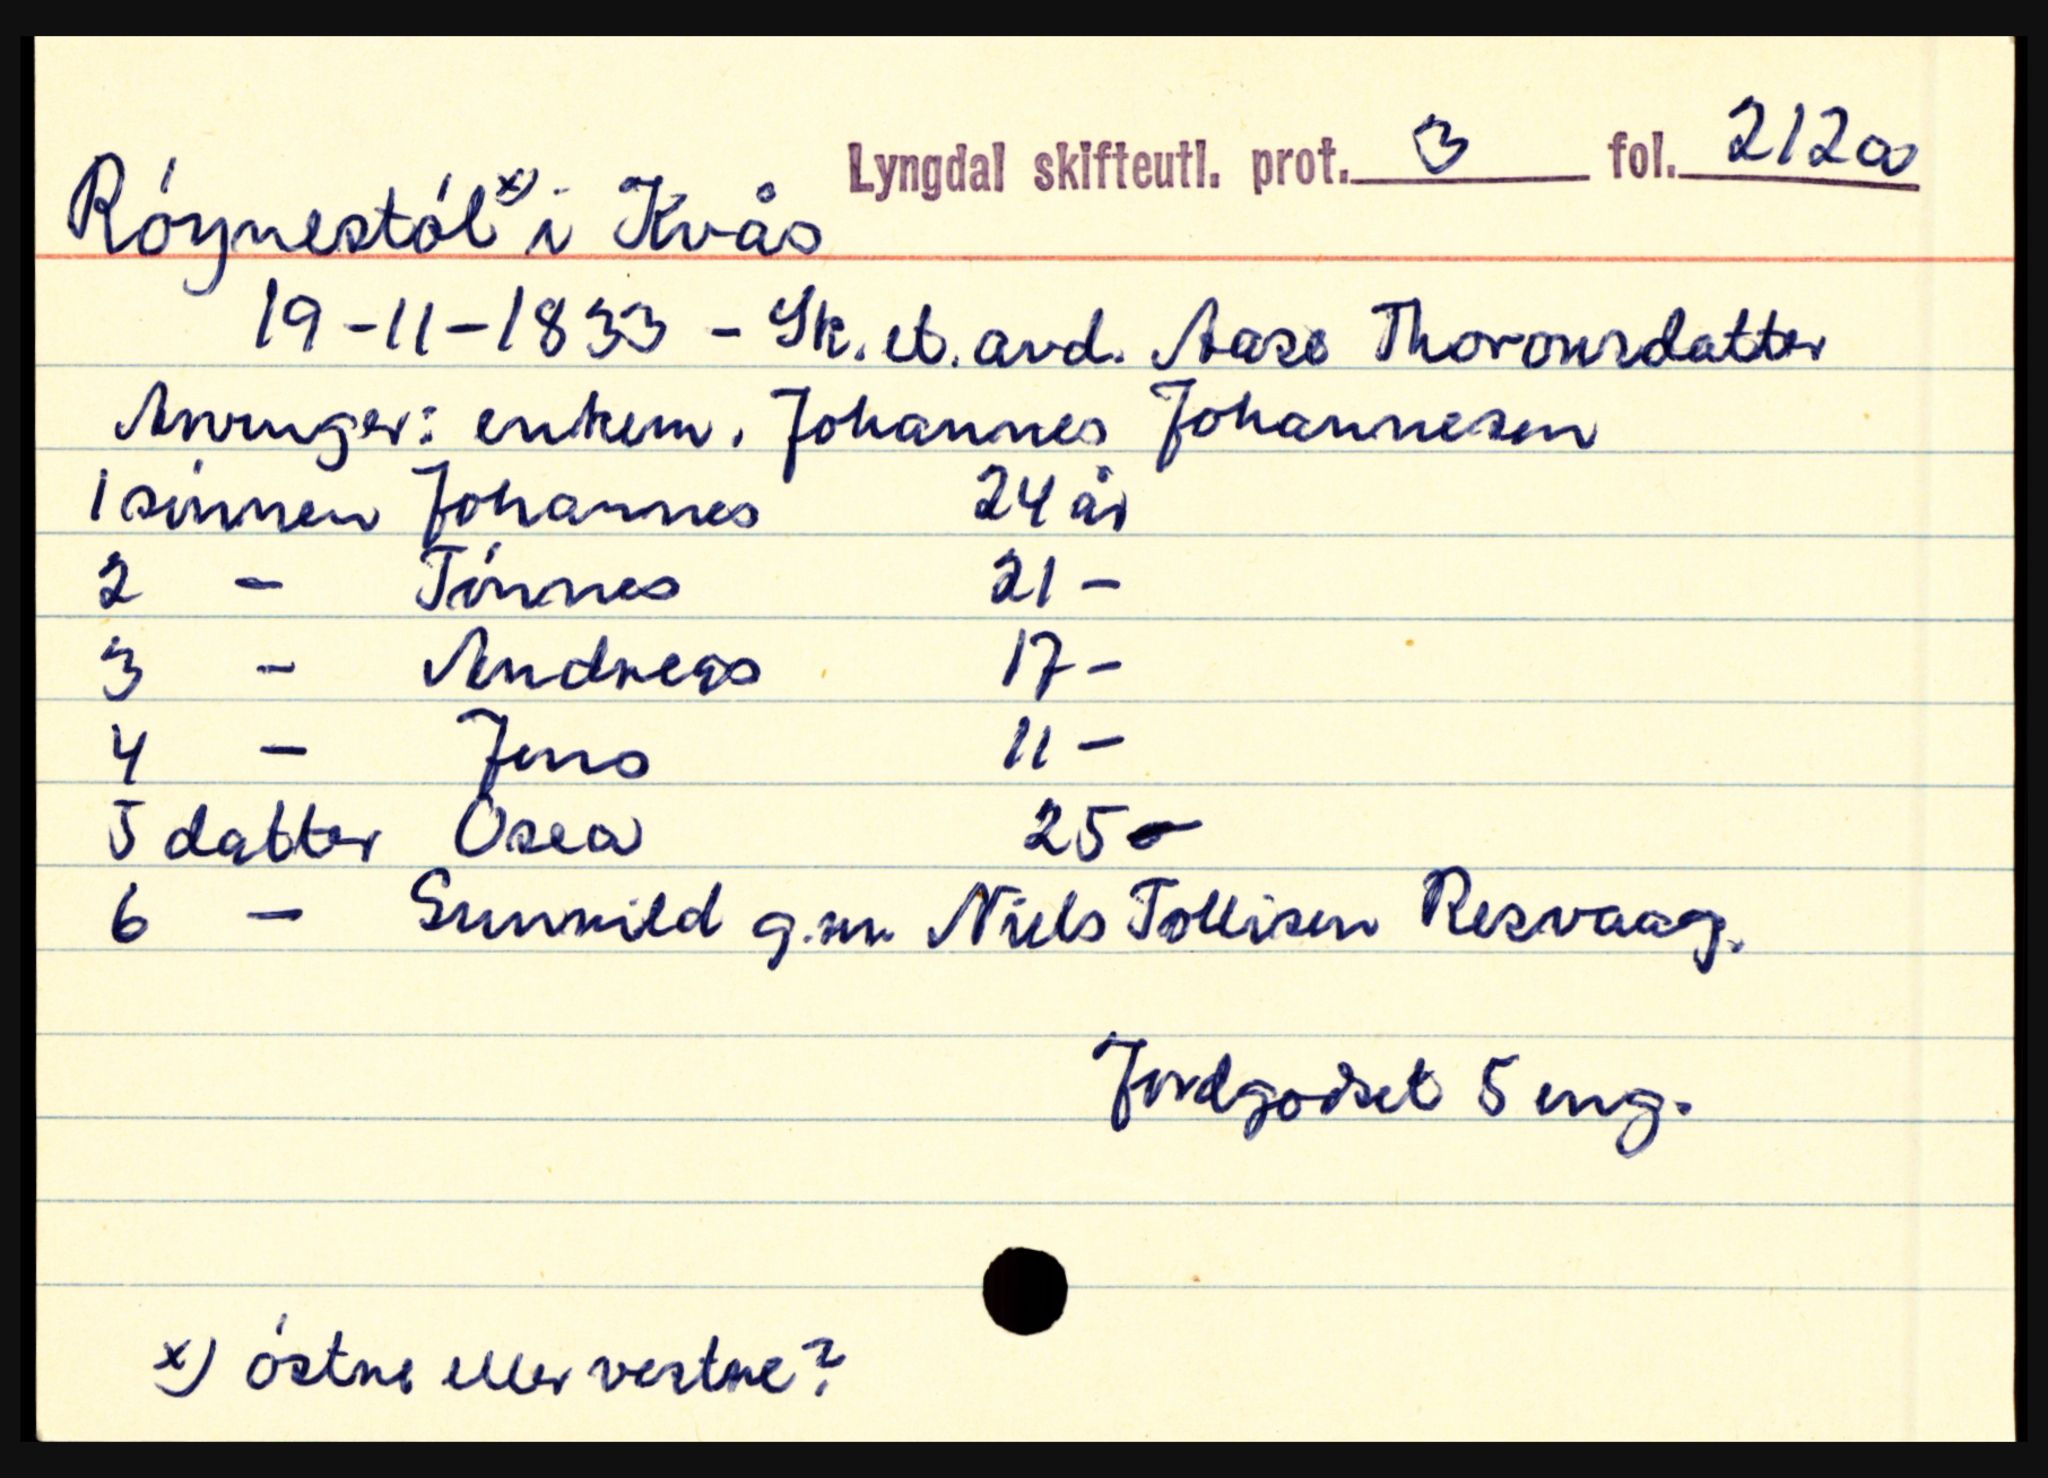 Lyngdal skifteutl. prot. 3 fol. 212a
Róynestól x) i Kvås
19-11-1833 - Sk. et. avd. Aase Thorkonsdatter
Arvinger: enkem. Johannes Johannesen
1 sónnen Johannes 24 år
2 - Tónnes 21 -
3 - Andreas 17 -
4 - Jens 11 -
5 datter Osea 25 -
6 - Gunnild g.m. Niels Tollisen Resvaag.
Jordgodset 5 eng.
x) óstre eller vestre?